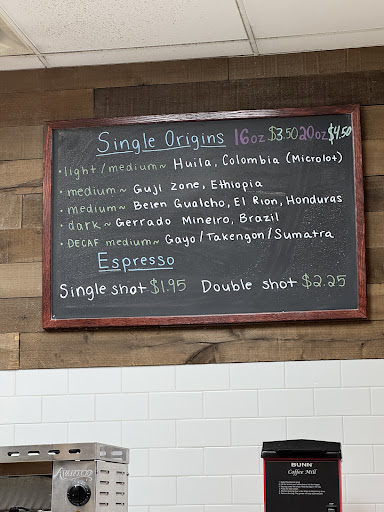 Single Origins 16oz $3.50 20oz $4.50
· light/medium~ Huila, Colombia (Microlot)
· medium~ Guji Zone, Ethiopia
· medium~ Belen Gualcho, El Rion, Honduras
· dark~ Gerrado Mineiro, Brazil
· DECAF medium~ Gayo/Takengon/Sumatra
Espresso
Single shot $1.95 Double shot $2.25
BUNN
Coffee Mill